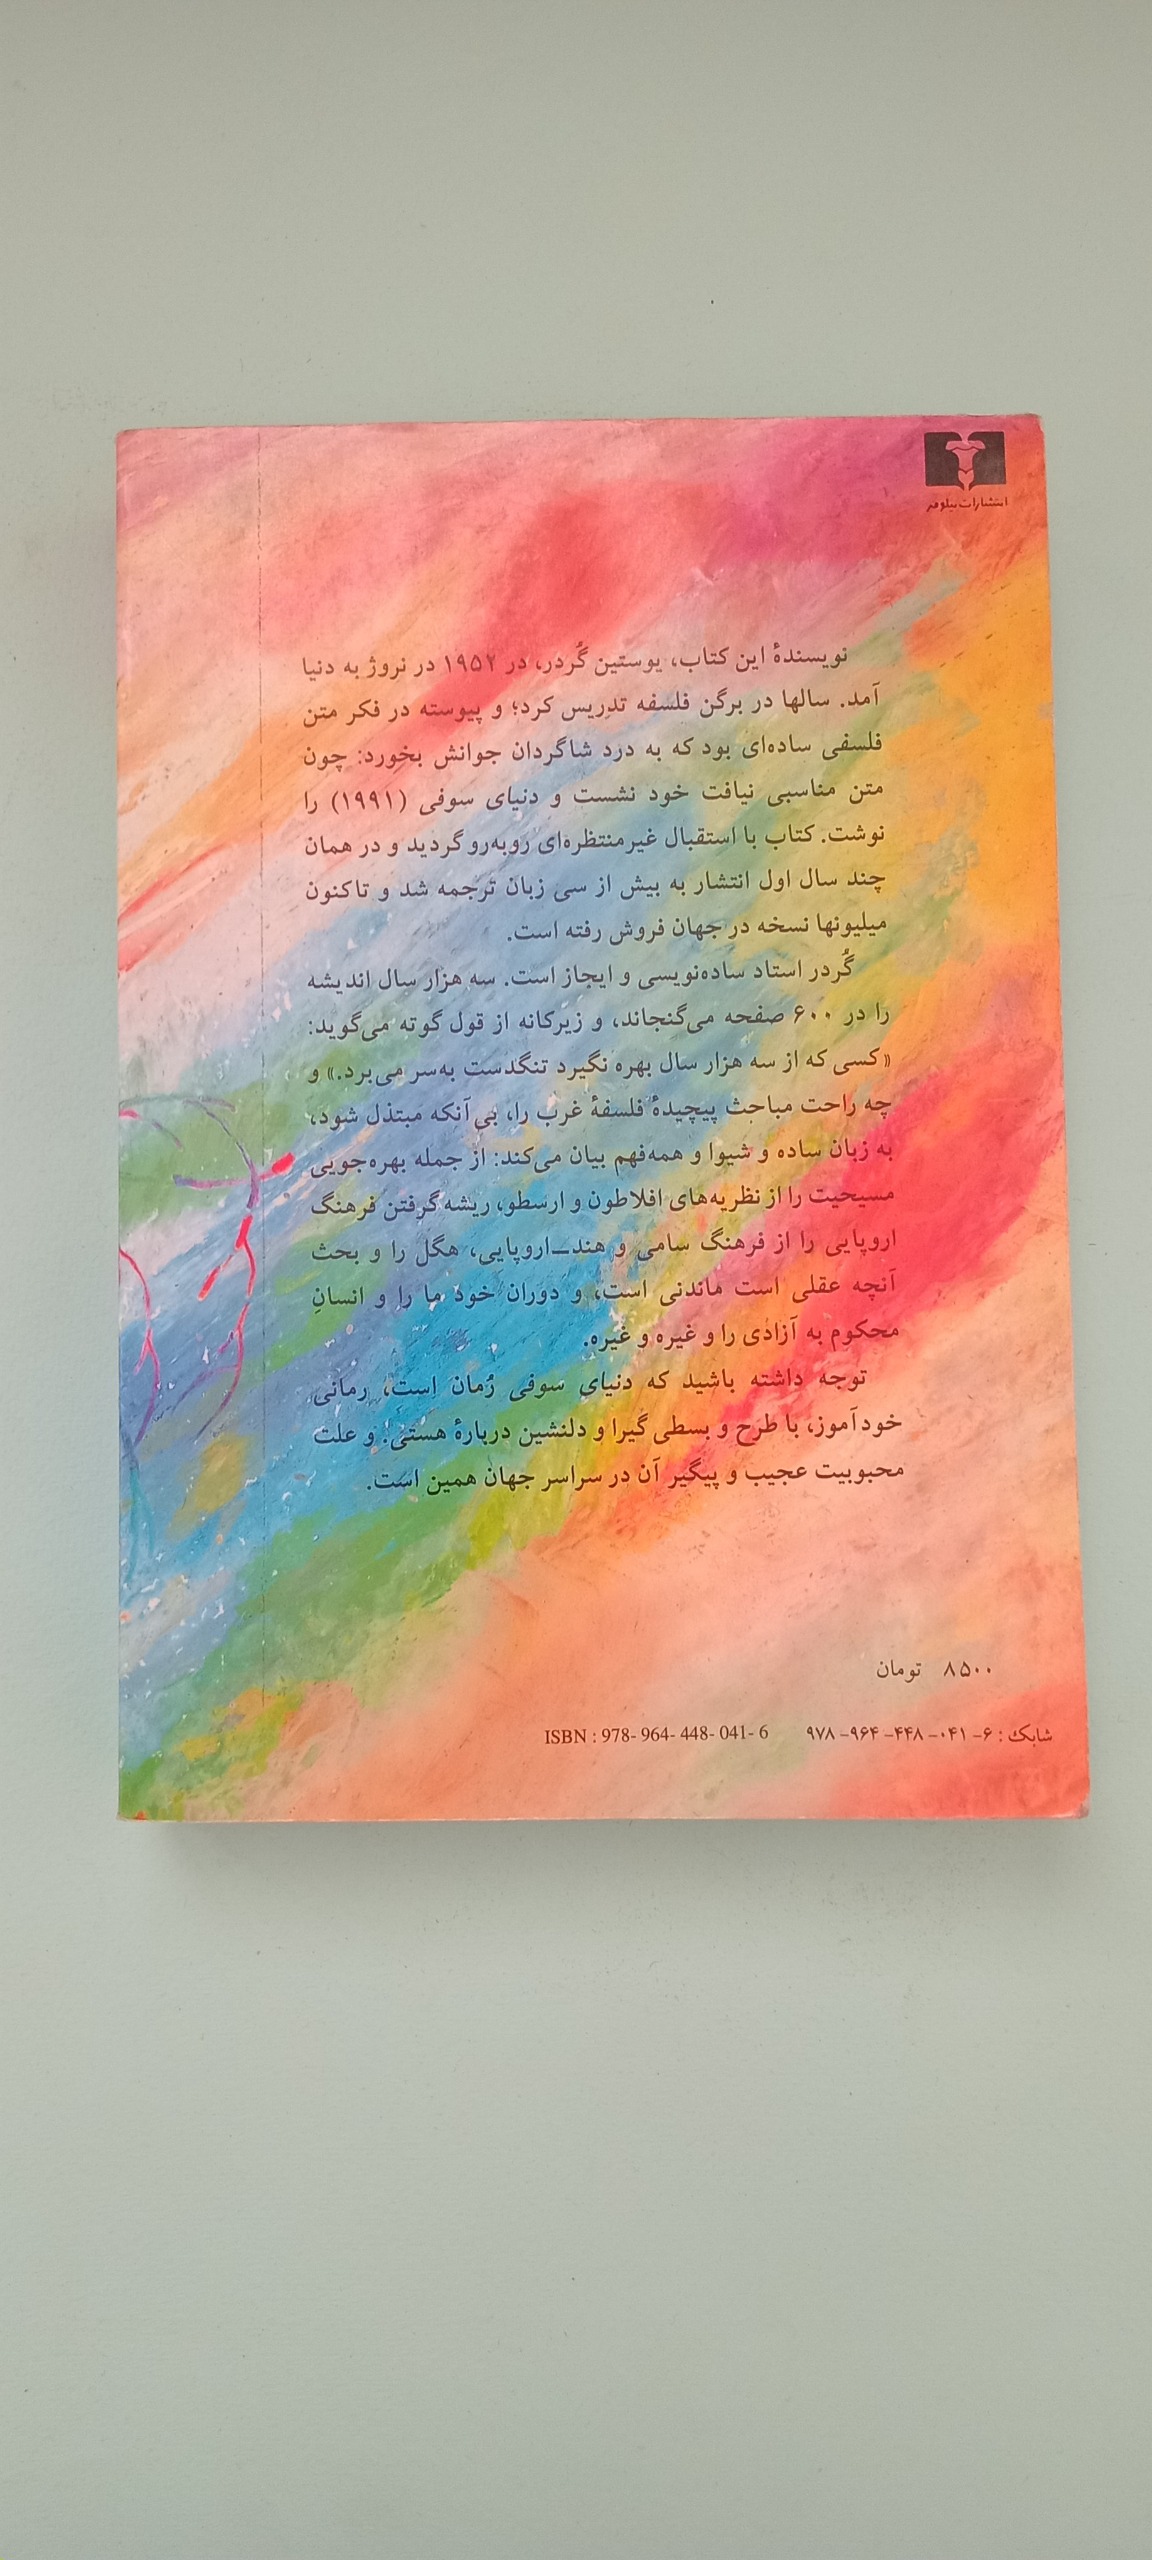 انتشارات نیلوفر
نویسندهٔ این کتاب، یوستین گُردر، در ۱۹۵۲ در نروژ به دنیا
آمد. سالها در برگن فلسفه تدریس کرد؛ و پیوسته در فکر متن
فلسفی ساده‌ای بود که به درد شاگردان جوانش بخورد: چون
متن مناسبی نیافت خود نشست و دنیای سوفی (۱۹۹۱) را
نوشت. کتاب با استقبال غیرمنتظره‌ای روبه‌رو گردید و در همان
چند سال اول انتشار به بیش از سی زبان ترجمه شد و تاکنون
میلیونها نسخه در جهان فروش رفته است.
گُردر استاد ساده‌نویسی و ایجاز است. سه هزار سال اندیشه
را در ۶۰۰ صفحه می‌گنجاند، و زیرکانه از قول گوته می‌گوید:
«کسی که از سه هزار سال بهره نگیرد تنگدست به‌سر می‌برد.» و
چه راحت مباحث پیچیدهٔ فلسفهٔ غرب را، بی‌آنکه مبتذل شود،
به زبان ساده و شیوا و همه‌فهم بیان می‌کند: از جمله بهره‌جویی
مسیحیت را از نظریه‌های افلاطون و ارسطو، ریشه گرفتن فرهنگ
اروپایی را از فرهنگ سامی و هند_اروپایی، هگل را و بحث
آنچه عقلی است ماندنی است، و دوران خود ما را و انسانِ
محکوم به آزادی را و غیره و غیره.
توجه داشته باشید که دنیای سوفی رُمان است، رمانی
خودآموز، با طرح و بسطی گیرا و دلنشین دربارهٔ هستی؛ و علت
محبوبیت عجیب و پیگیر آن در سراسر جهان همین است.
۸۵۰۰ تومان
شابک : ۶- ۰۴۱- ۴۴۸- ۹۶۴- ۹۷۸ ISBN : 978- 964- 448- 041- 6